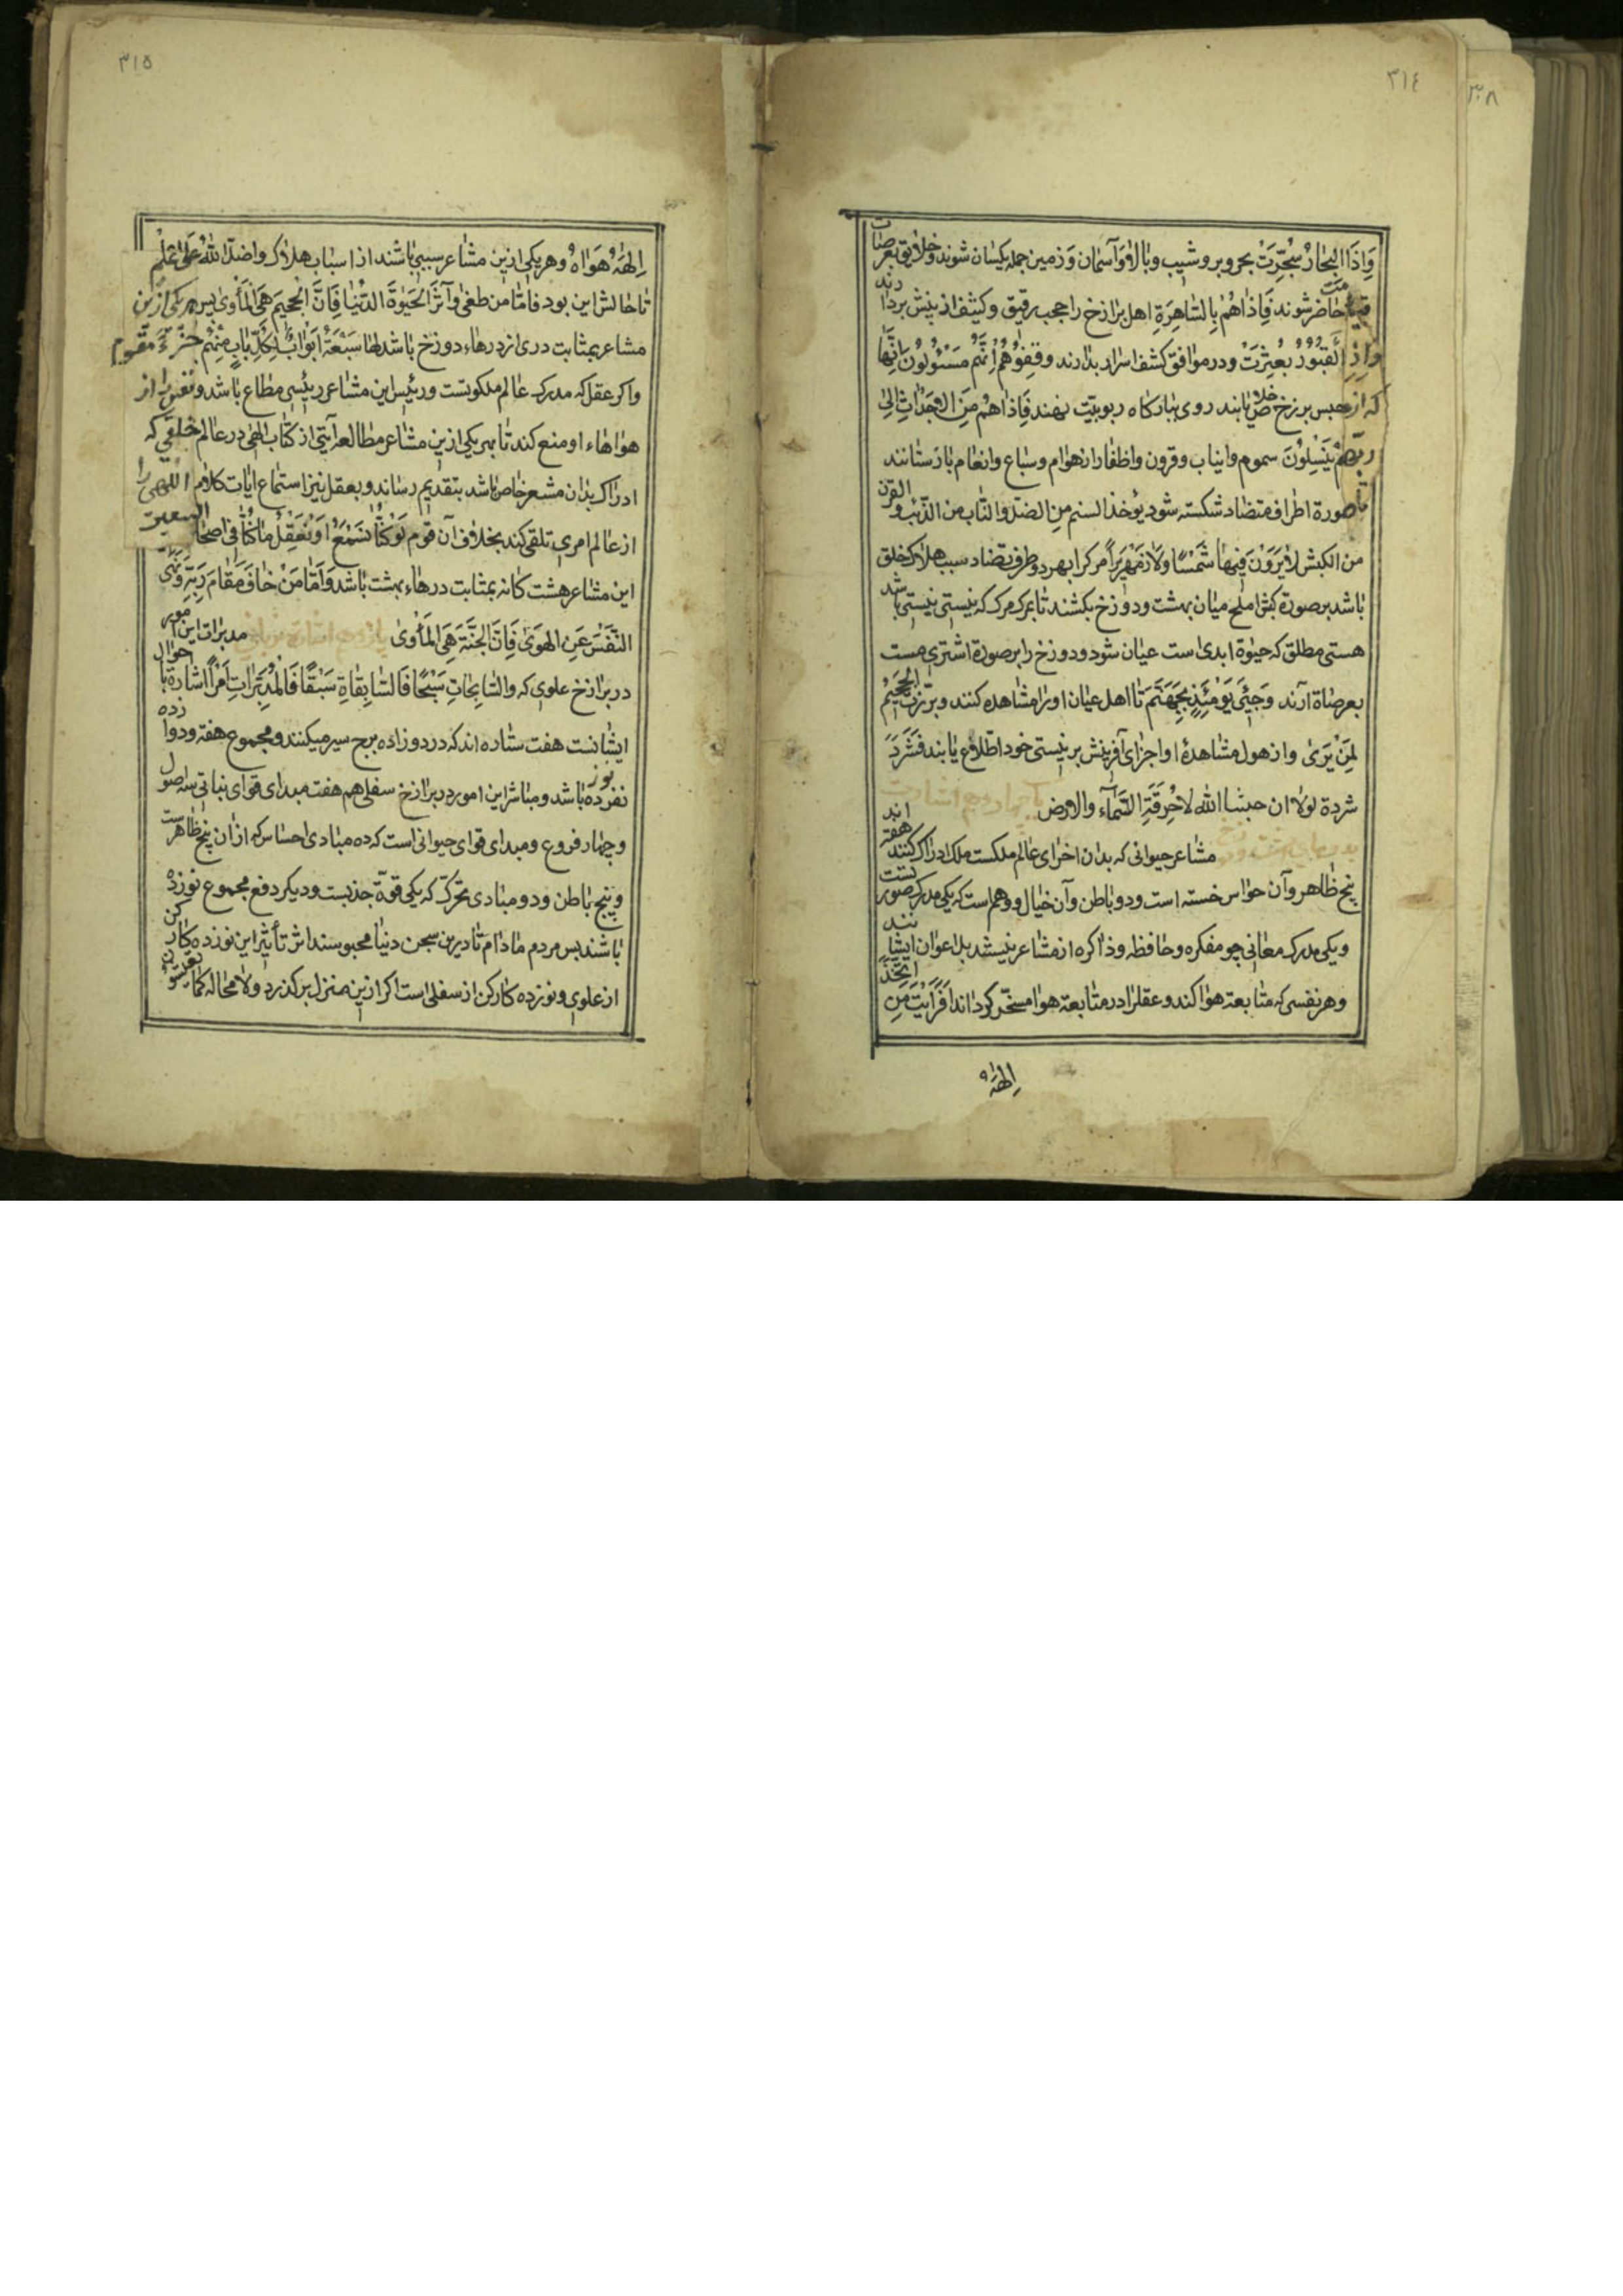 ٣١٤
٣٠٨
وَاِذَا البِحَارُ سُجِّرَتْ بحر و بر و شیب و بالا و آسمان و زمین جمله یکسان شوند و خلایق بعرصات
قیامت حاضر شوند فَاِذَاهُمْ بِالسَّاهِرَةِ اهل برازخ را حجب رقیق و کثیف از پیش بردارند
وَاِذِ القُبُورُ بُعْثِرَتْ و در مواقف کشف اسرار بدارند وقِفُوهُمْ اِنَّهُمْ مَسْئُولُونَ انها
که از حبس برزخ خلاص یابند روی ببارکاه ربوبیّت نهند فَاِذَاهُمْ مِنَ الاَجْدَاثِ اِلٰی
رَبِّهِمْ یَنْسِلُوُنَ سموم و انیاب و قرون و اظفار از هوام و سباع و انعام بازستانند
تا صورة اطراف متضاد شکسته شود یؤخذ السنم من الضلّ والناب من الذئب والقرن
من الکبش لایَرَوْنَ فِیهَا شَمْسًا وَلَا زَمْهَرِیرًا مرک را بهر دو طرف تضاد سبب هلاک خلق
باشد بر صورة کبش املح میان بهشت و دوزخ بکشند تا بمرک مرک که نیستی نیستی باشد
هستی مطلق که حیوٰة ابدی است عیان شود و دوزخ را بر صورة اشتری مست
بعرصاة آرند وَجِئَ یَوْمَئِذٍ بِجَهَنَّمَ تا اهل عیان او را مشاهده کنند وبُرِّزَتِ الجَحِیمُ
لِمَنْ یَرَیٰ و از هول مشاهدهٔ او اجزای آفرینش بر نیستی خود اطلاع یابند فَشَرَدَ
شردة لولا ان حبسا الله لاحْرقَةِ السَّمَآءَ والارض
مشاعر حیوانی که بدان اخرای عالم ملکست ملک ادراک کنند هفته اند
پنج ظاهر و آن حواس خمسه است و دو باطن و آن خیال و وهم است که یکی مدرک صور تست
و یکی مدرک معانی چو مفکره و حافظه و ذاکره از مشاعر نیستند بل اعوان ایشانند
و هر نفسی که متابعة هوا کند و عقلرا در متابعة هوا مسخّر کرداند اَفَرَاَیْتَ مَنِ اتَّخَذَ
اِلٰهَهُ
٣١٥
اِلٰهَهُ هَوٰاهُ و هر یکی ازین مشاعر سببی باشند از اسباب هلاک واضلّه اللهُ عَلیٰ عِلْمٍ
تا حالش این بود فامّا من طغیٰ وآثَرَ الحَیٰوةَ الدُّنْیَا فَاِنَّ الجَحِیمَ هِیَ المَأْوَیٰ پس هر یکی ازین
مشاعر بمثابت دری از درهاء دوزخ باشد لها سَبْعَةُ اَبْوَابٍ لِکُلِّ بَابٍ مِنْهُمْ جُزْءٌ مَقْسُوم
و اکر عقل که مدرک عالم ملکوتست و رئیس این مشاعر رئیسی مطاع باشد و نفس را از
هواهاء او منع کند تا بهر یکی ازین مشاعر مطالعهٔ آیتی از کتاب الٰهی در عالم خلقی که
ادراک بدان مشعر خاص باشد بتقدیم رساند و بعقل نیز استماع ایات کلام اللهی را
از عالم امری تلقی کند بخلاف آن قوم لَوْکُنَّا نَسْمَعُ اَوْنَعْقِلُ مَاکُنَّا فِی اَصْحَابِ السعیر
این مشاعر هشت کانه بمثابت درهاء بهشت باشد وَاَمَّا مَنْ خَافَ مَقَامَ رَبِّهِ وَنَهَی
النَّفْسَ عَنِ الهَوَیٰ فَاِنَّ الجَنَّةَ هِیَ المَأْوَیٰ مدبرات این امور
در برازخ علوی که والسّابِحَاتِ سَبْحًا فَالسَّابِقَاةِ سَبْقًا فَالمُدَبِّرَاتِ اَمْرًا اشارة باحوال
ایشانست هفت ستاره اند که در دوزاده برج سیر میکنند و مجموع هفة و دوازده
نوزده باشد و مباشر این امور در برازخ سفلی هم هفت مبدای قوای نباتی سه اصول
و چهار فروع و مبدای قوای حیوانی است که ده مبادی احساس که ازان پنج ظاهرست
و پنج باطن و دو مبادی تحرک که یکی قوّة جذبست و دیکر دفع مجموع نوزده
باشند پس مردم مادام تا درین سجن دنیا محبوسند اثر تأثیر این نوزده کارکن
از علوی و نوزده کارکن از سفلی است اکر ازین منزل برکذرد و لا محاله کما